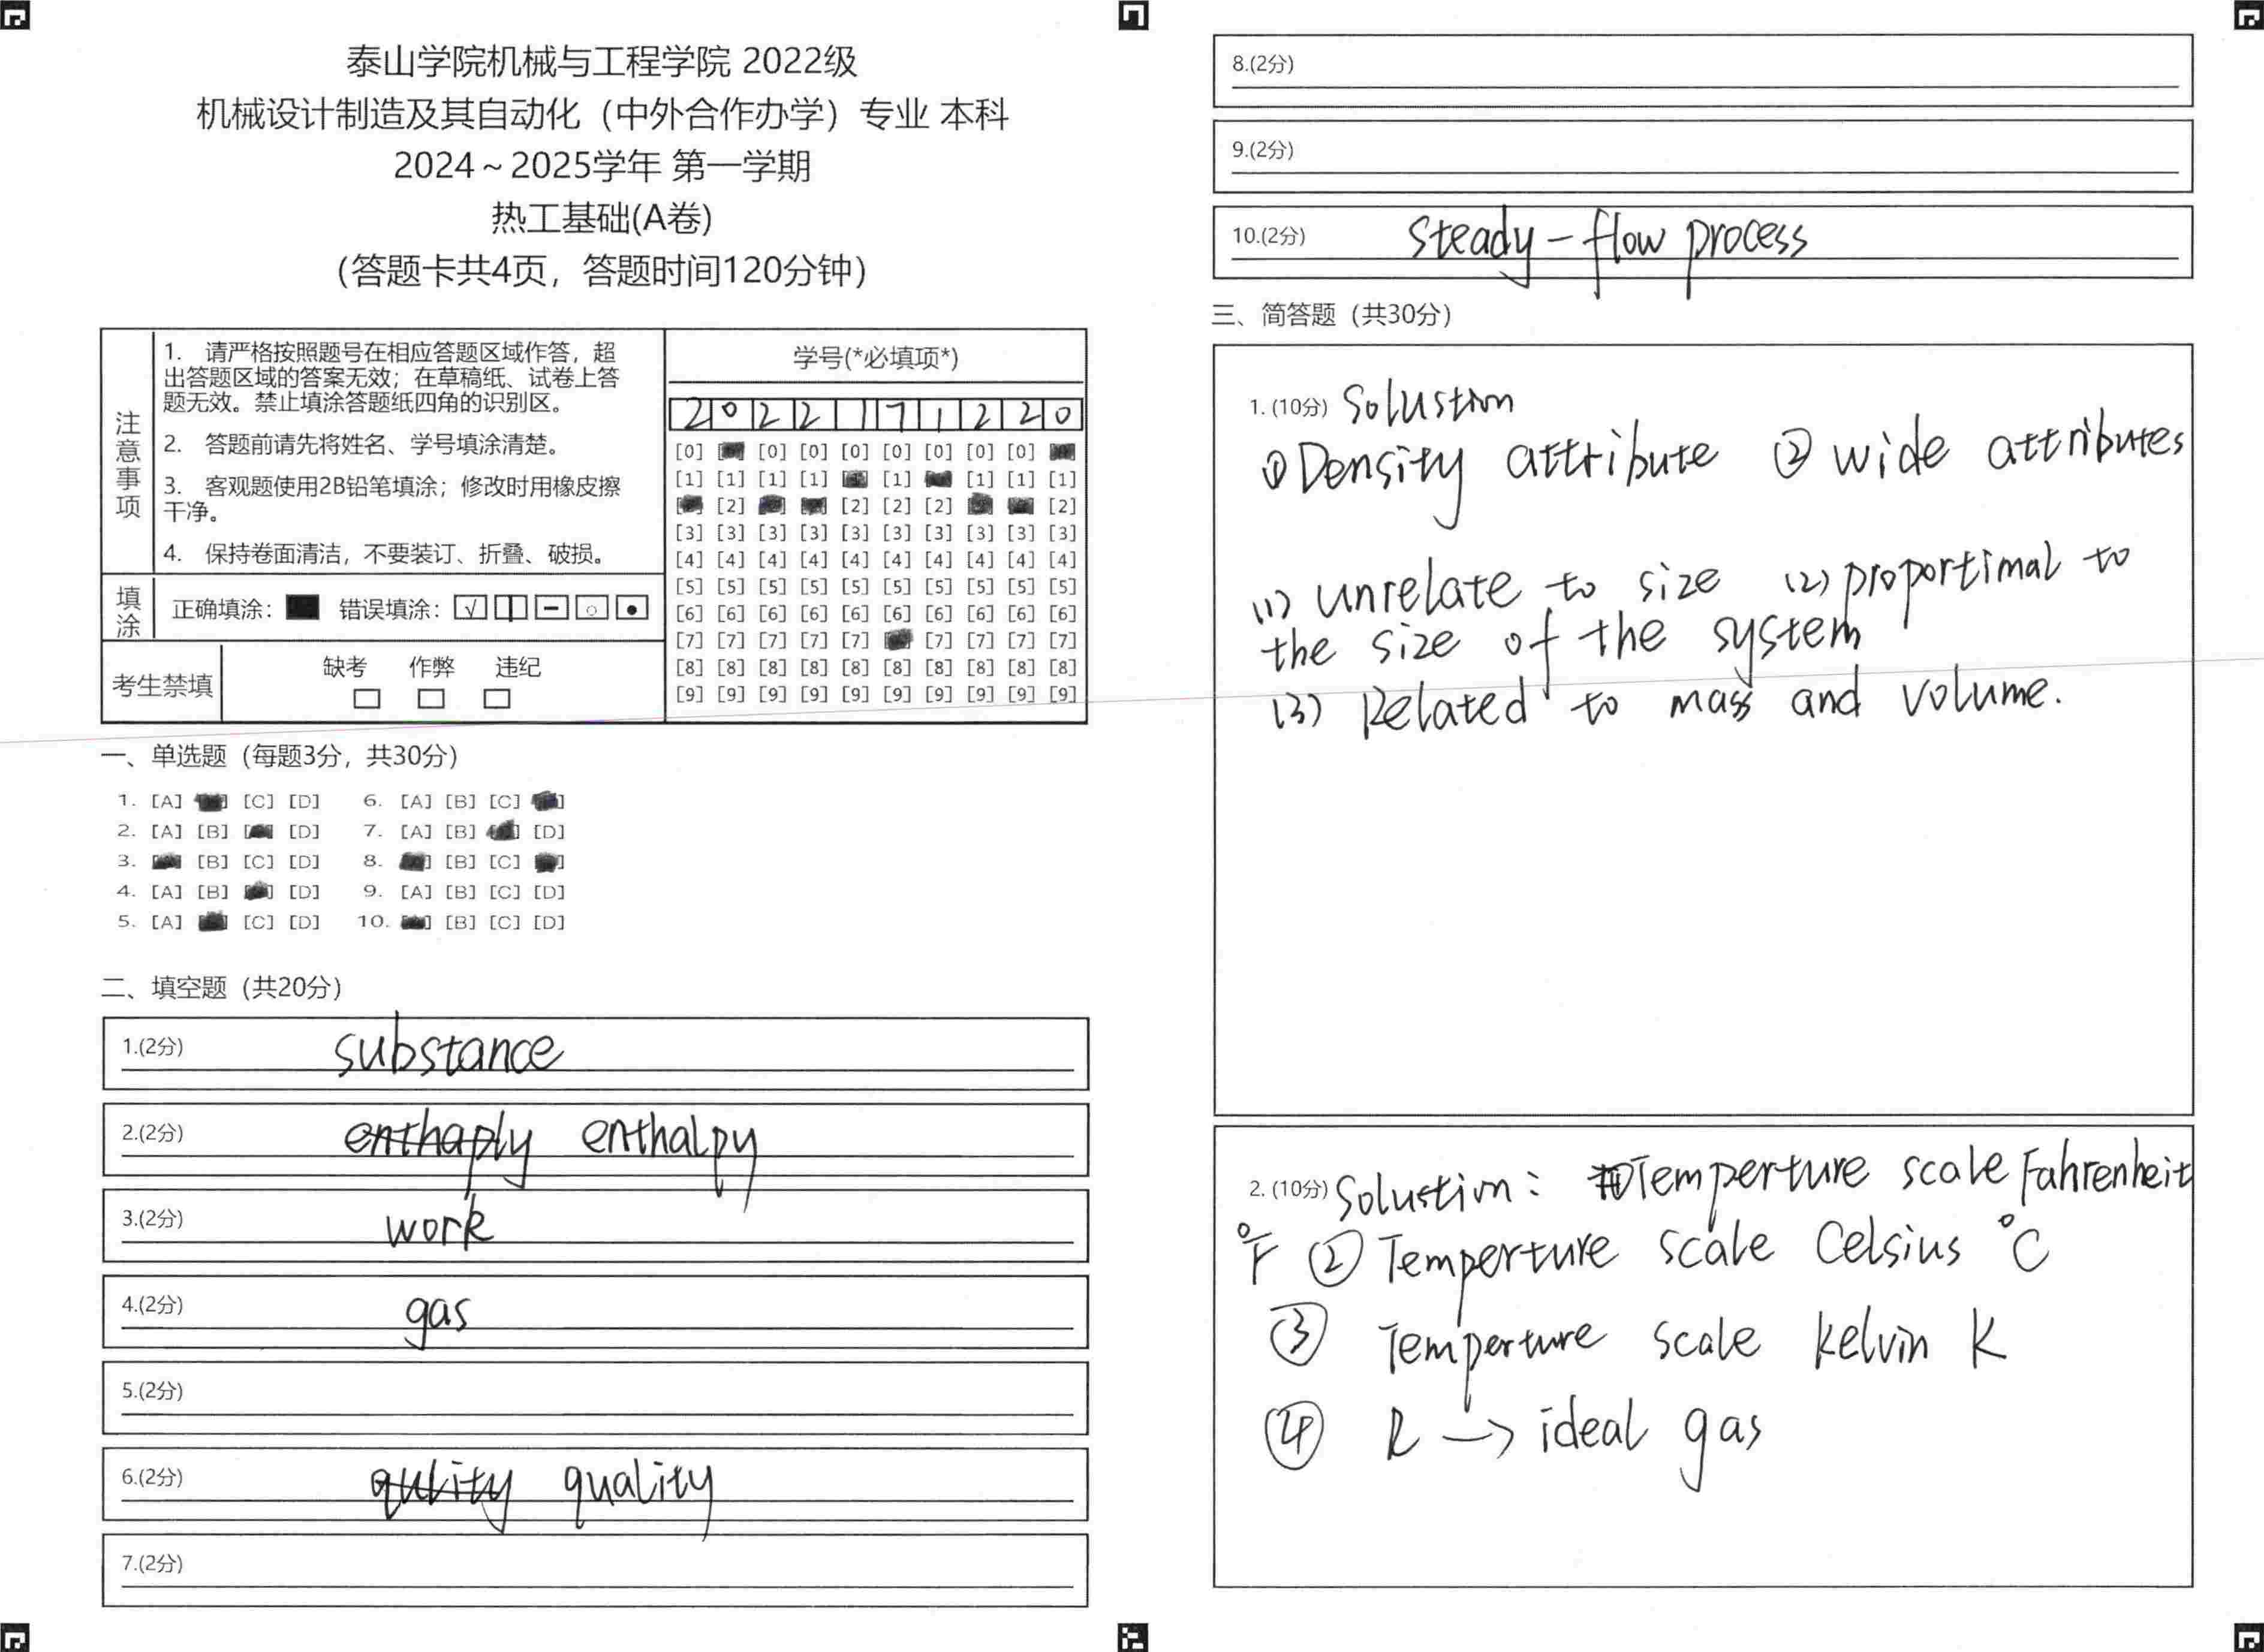 泰山学院机械与工程学院 2022级
机械设计制造及其自动化（中外合作办学）专业 本科
2024～2025学年 第一学期
热工基础(A卷)
（答题卡共4页，答题时间120分钟）
注意事项
1. 请严格按照题号在相应答题区域作答，超
出答题区域的答案无效；在草稿纸、试卷上答
题无效。禁止填涂答题纸四角的识别区。
2. 答题前请先将姓名、学号填涂清楚。
3. 客观题使用2B铅笔填涂；修改时用橡皮擦
干净。
4. 保持卷面清洁，不要装订、折叠、破损。
填涂
正确填涂： 错误填涂：
考生禁填
缺考 作弊 违纪
学号(*必填项*)
2 0 2 2 1 7 1 2 2 0
[0] [0] [0] [0] [0] [0] [0] [0]
[1] [1] [1] [1] [1] [1] [1] [1]
[2] [2] [2] [2] [2]
[3] [3] [3] [3] [3] [3] [3] [3] [3] [3]
[4] [4] [4] [4] [4] [4] [4] [4] [4] [4]
[5] [5] [5] [5] [5] [5] [5] [5] [5] [5]
[6] [6] [6] [6] [6] [6] [6] [6] [6] [6]
[7] [7] [7] [7] [7] [7] [7] [7] [7]
[8] [8] [8] [8] [8] [8] [8] [8] [8] [8]
[9] [9] [9] [9] [9] [9] [9] [9] [9] [9]
一、单选题（每题3分，共30分）
1. [A] [C] [D] 6. [A] [B] [C]
2. [A] [B] [D] 7. [A] [B] [D]
3. [B] [C] [D] 8. [B] [C]
4. [A] [B] [D] 9. [A] [B] [C] [D]
5. [A] [C] [D] 10. [B] [C] [D]
二、填空题（共20分）
1.(2分) substance
2.(2分) enthaply enthalpy
3.(2分) work
4.(2分) gas
5.(2分)
6.(2分) qulity quality
7.(2分)
8.(2分)
9.(2分)
10.(2分) steady-flow process
三、简答题（共30分）
1. (10分) Solustion
① Density attribute ② wide attributes
(1) unrelate to size (2) proportimal to
the size of the system
(3) Related to mass and volume.
2. (10分) Solustion: ①Temperture scale Fahrenheit
°F ② Temperture scale Celsius °C
③ Temperture scale kelvin K
④ R → ideal gas